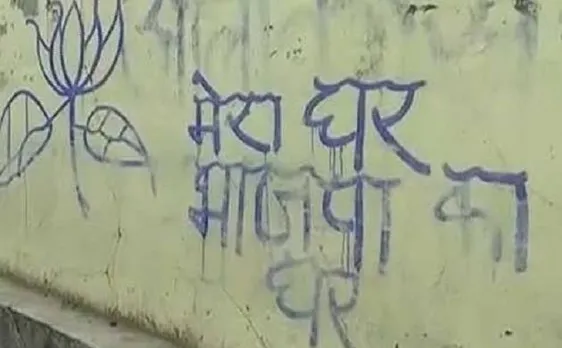 मेरा घर
भाजपा का
घर